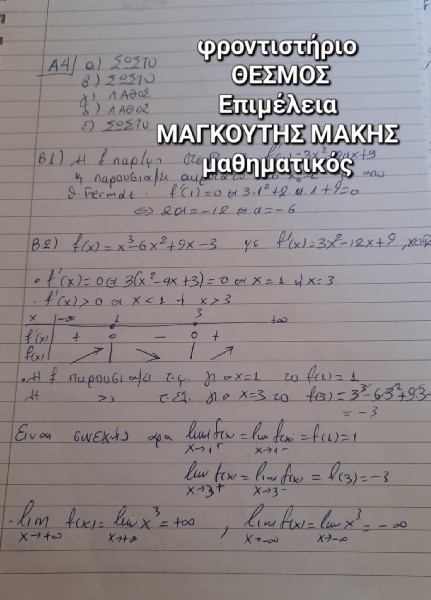 φροντιστήριο
ΘΕΣΜΟΣ
Επιμέλεια
ΜΑΓΚΟΥΤΗΣ ΜΑΚΗΣ
μαθηματικός
A4) α) ΣΩΣΤΟ
β) ΣΩΣΤΟ
γ) ΛΑΘΟΣ
δ) ΛΑΘΟΣ
ε) ΣΩΣΤΟ
B1) Η f παρ/μη
θ Fermat. f'(1)=0 ⇔ 3·1²+2α·1+9=0
⇔ 2α=-12 ⇔ α=-6
B2) f(x)=x³-6x²+9x-3 με f'(x)=3x²-12x+9
• f'(x)=0 ⇔ 3(x²-4x+3)=0 ⇔ x=1 ή x=3
• f'(x)>0 ⇔ x<1 ή x>3
x -∞ 1 3 +∞
f'(x) + 0 - 0 +
f(x) ↗ ↘ ↗
• Η f παρουσιάζει τ.μ. για x=1 το f(1)=1
Η >> τ.ε. για x=3 το f(3)=3³-6·3²+9·3-
= -3
Είναι συνεχής άρα lim f(x) = lim f(x) = f(1)=1
x→1⁺ x→1⁻
lim f(x) = lim f(x) = f(3)=-3
x→3⁺ x→3⁻
• lim f(x)= lim x³=+∞ , lim f(x)= lim x³=-∞
x→+∞ x→+∞ x→-∞ x→-∞